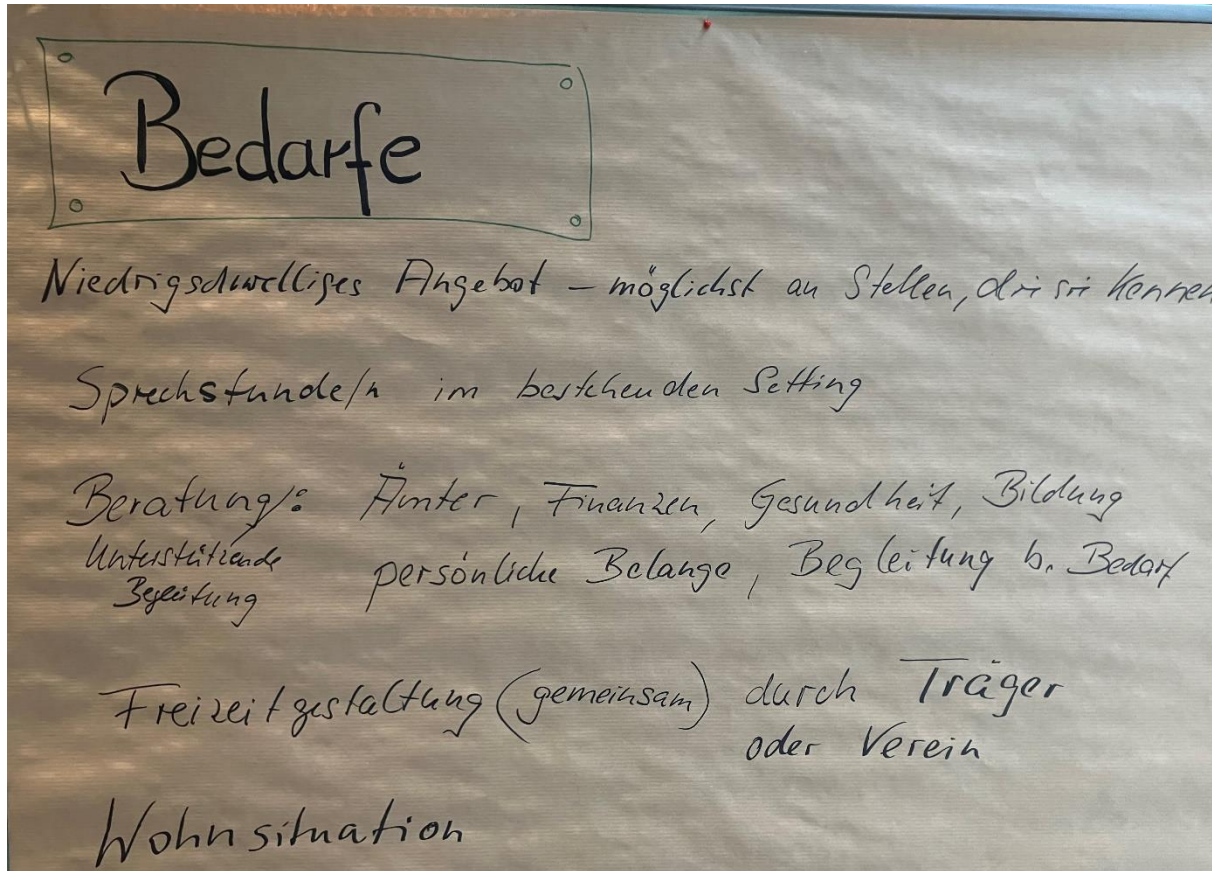 Bedarfe
Niedrigschwelliges Angebot – möglichst an Stellen, die sie kennen
Sprechstunde/n im bestehenden Setting
Beratung/: Ämter, Finanzen, Gesundheit, Bildung
Unterstützende Begleitung
persönliche Belange, Begleitung b. Bedarf
Freizeitgestaltung (gemeinsam) durch Träger
oder Verein
Wohnsituation